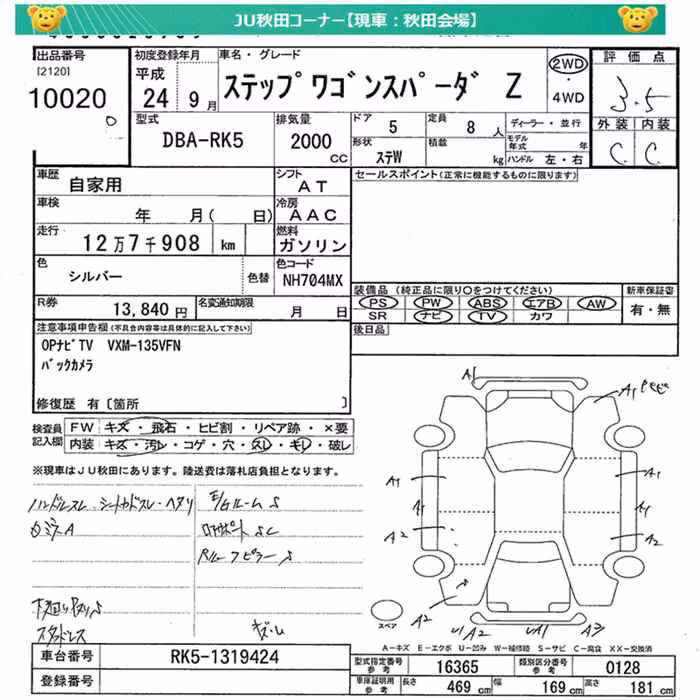 JU秋田コーナー【現車：秋田会場】
出品番号
[2120]
10020
初度登録年月
平成
24 9月
車名・グレード
ステップワゴンスパーダ Z
2WD
・
4WD
評価点
3.5
型式
DBA-RK5
排気量
2000
CC
ドア
5
定員
8 人
形状
ステW
積載
kg
ディーラー・並行
モデル
年式 年
ハンドル 左・右
外装 内装
C C
車歴
自家用
シフト
AT
セールスポイント(正常に機能するものに限ります)
車検
年 月( 日)
冷房
AAC
走行
12万7千908 km
燃料
ガソリン
色
シルバー
色替
色コード
NH704MX
装備品 (純正品に限り○をつけてください)
新車保証書
PS PW ABS エアB AW
SR ナビ TV カワ
有・無
R券
13,840 円
名変通知期限
月 日
後日品
注意事項申告欄(不具合内容等は具体的に記入して下さい)
OPナビTV VXM-135VFN
バックカメラ
修復歴 有〔箇所 〕
検査員
記入欄
FW キズ・飛石・ヒビ割・リペア跡・×要
内装 キズ・汚レ・コゲ・穴・スレ・キレ・破レ
※現車はJU秋田にあります。陸送費は落札店負担となります。
ハンドルスレ、シートカドスレ・ヘタリ
E/GルームS
A1
A1
A1
A1
A1
A1
A2
A2
A2
スペア
U1 A2
UA1
A3
スタッドレス
キズ・ム
A－キズ E－エクボ U－凹み W－補修跡 S－サビ C－腐食 XX－交換済
車台番号
RK5-1319424
登録番号
型式指定番号
参考
16365
類別区分番号
参考
0128
車庫証明用
参考
長さ
469 cm
幅
169 cm
高さ
181 cm